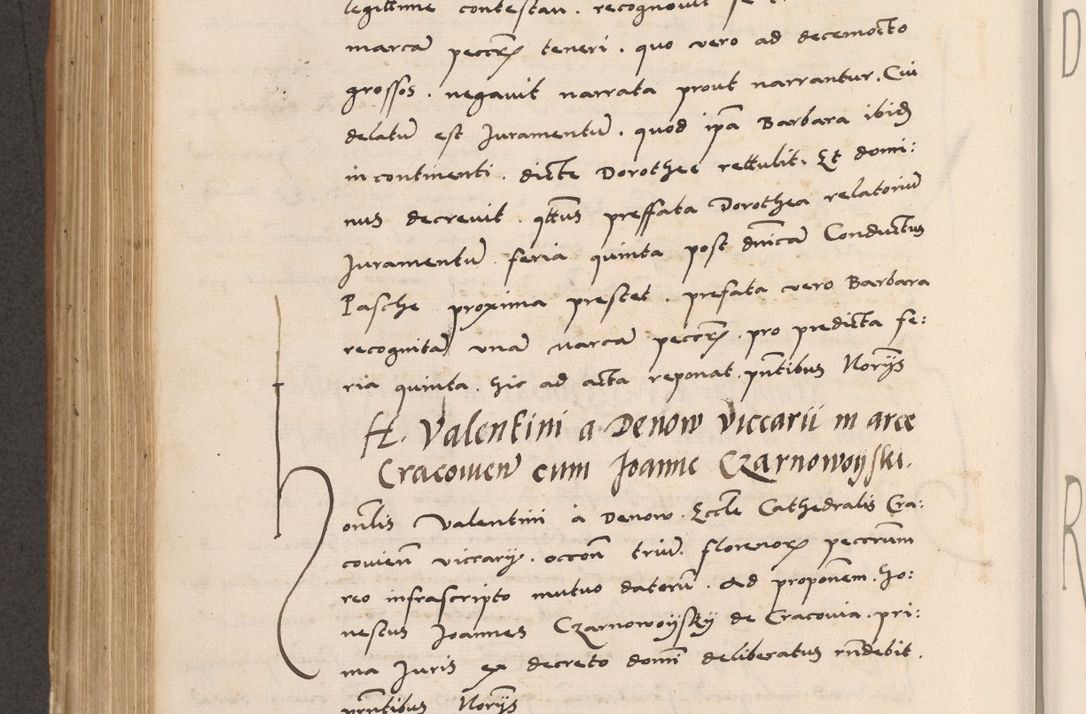 legittime contestan. recognovit se
marcā peccr̄ teneri. quo vero ad decemocto
grossos. negavit narrata prout narrantur. Cui
delatū est Juramentū. quod ip̄a Barbara ibid̄
in continenti. dicte Dorothee rettulit. Et domi:
nus decrevit. qt̄us preffata Dorothea relatoriū
Juramentū. feria quinta post dn̄icā Conductus
Pasche proxima prestet. prefata vero Barbara
recognitā unā marcā peccr̄. pro predicta fe:
ria quinta. hic ad acta reponat. pn̄tibus Norijs
H. Valentini a Denow viccarii in arce
Cracovien̄ cum Joanne Czarnowoyski.
Honlis Valentini à Denow. Eccl̄e Cathedralis Cra:
covien̄ viccarij. occōn triū. florenor̄ peccrum
reo infrascripto mutuo datorū. Ad proponem. ho:
nestus Joannes Czarnowoyski de Cracovia. pri:
ma Juris ex decreto domī deliberatus rn̄debit.
prn̄tibus Norijs
D
R